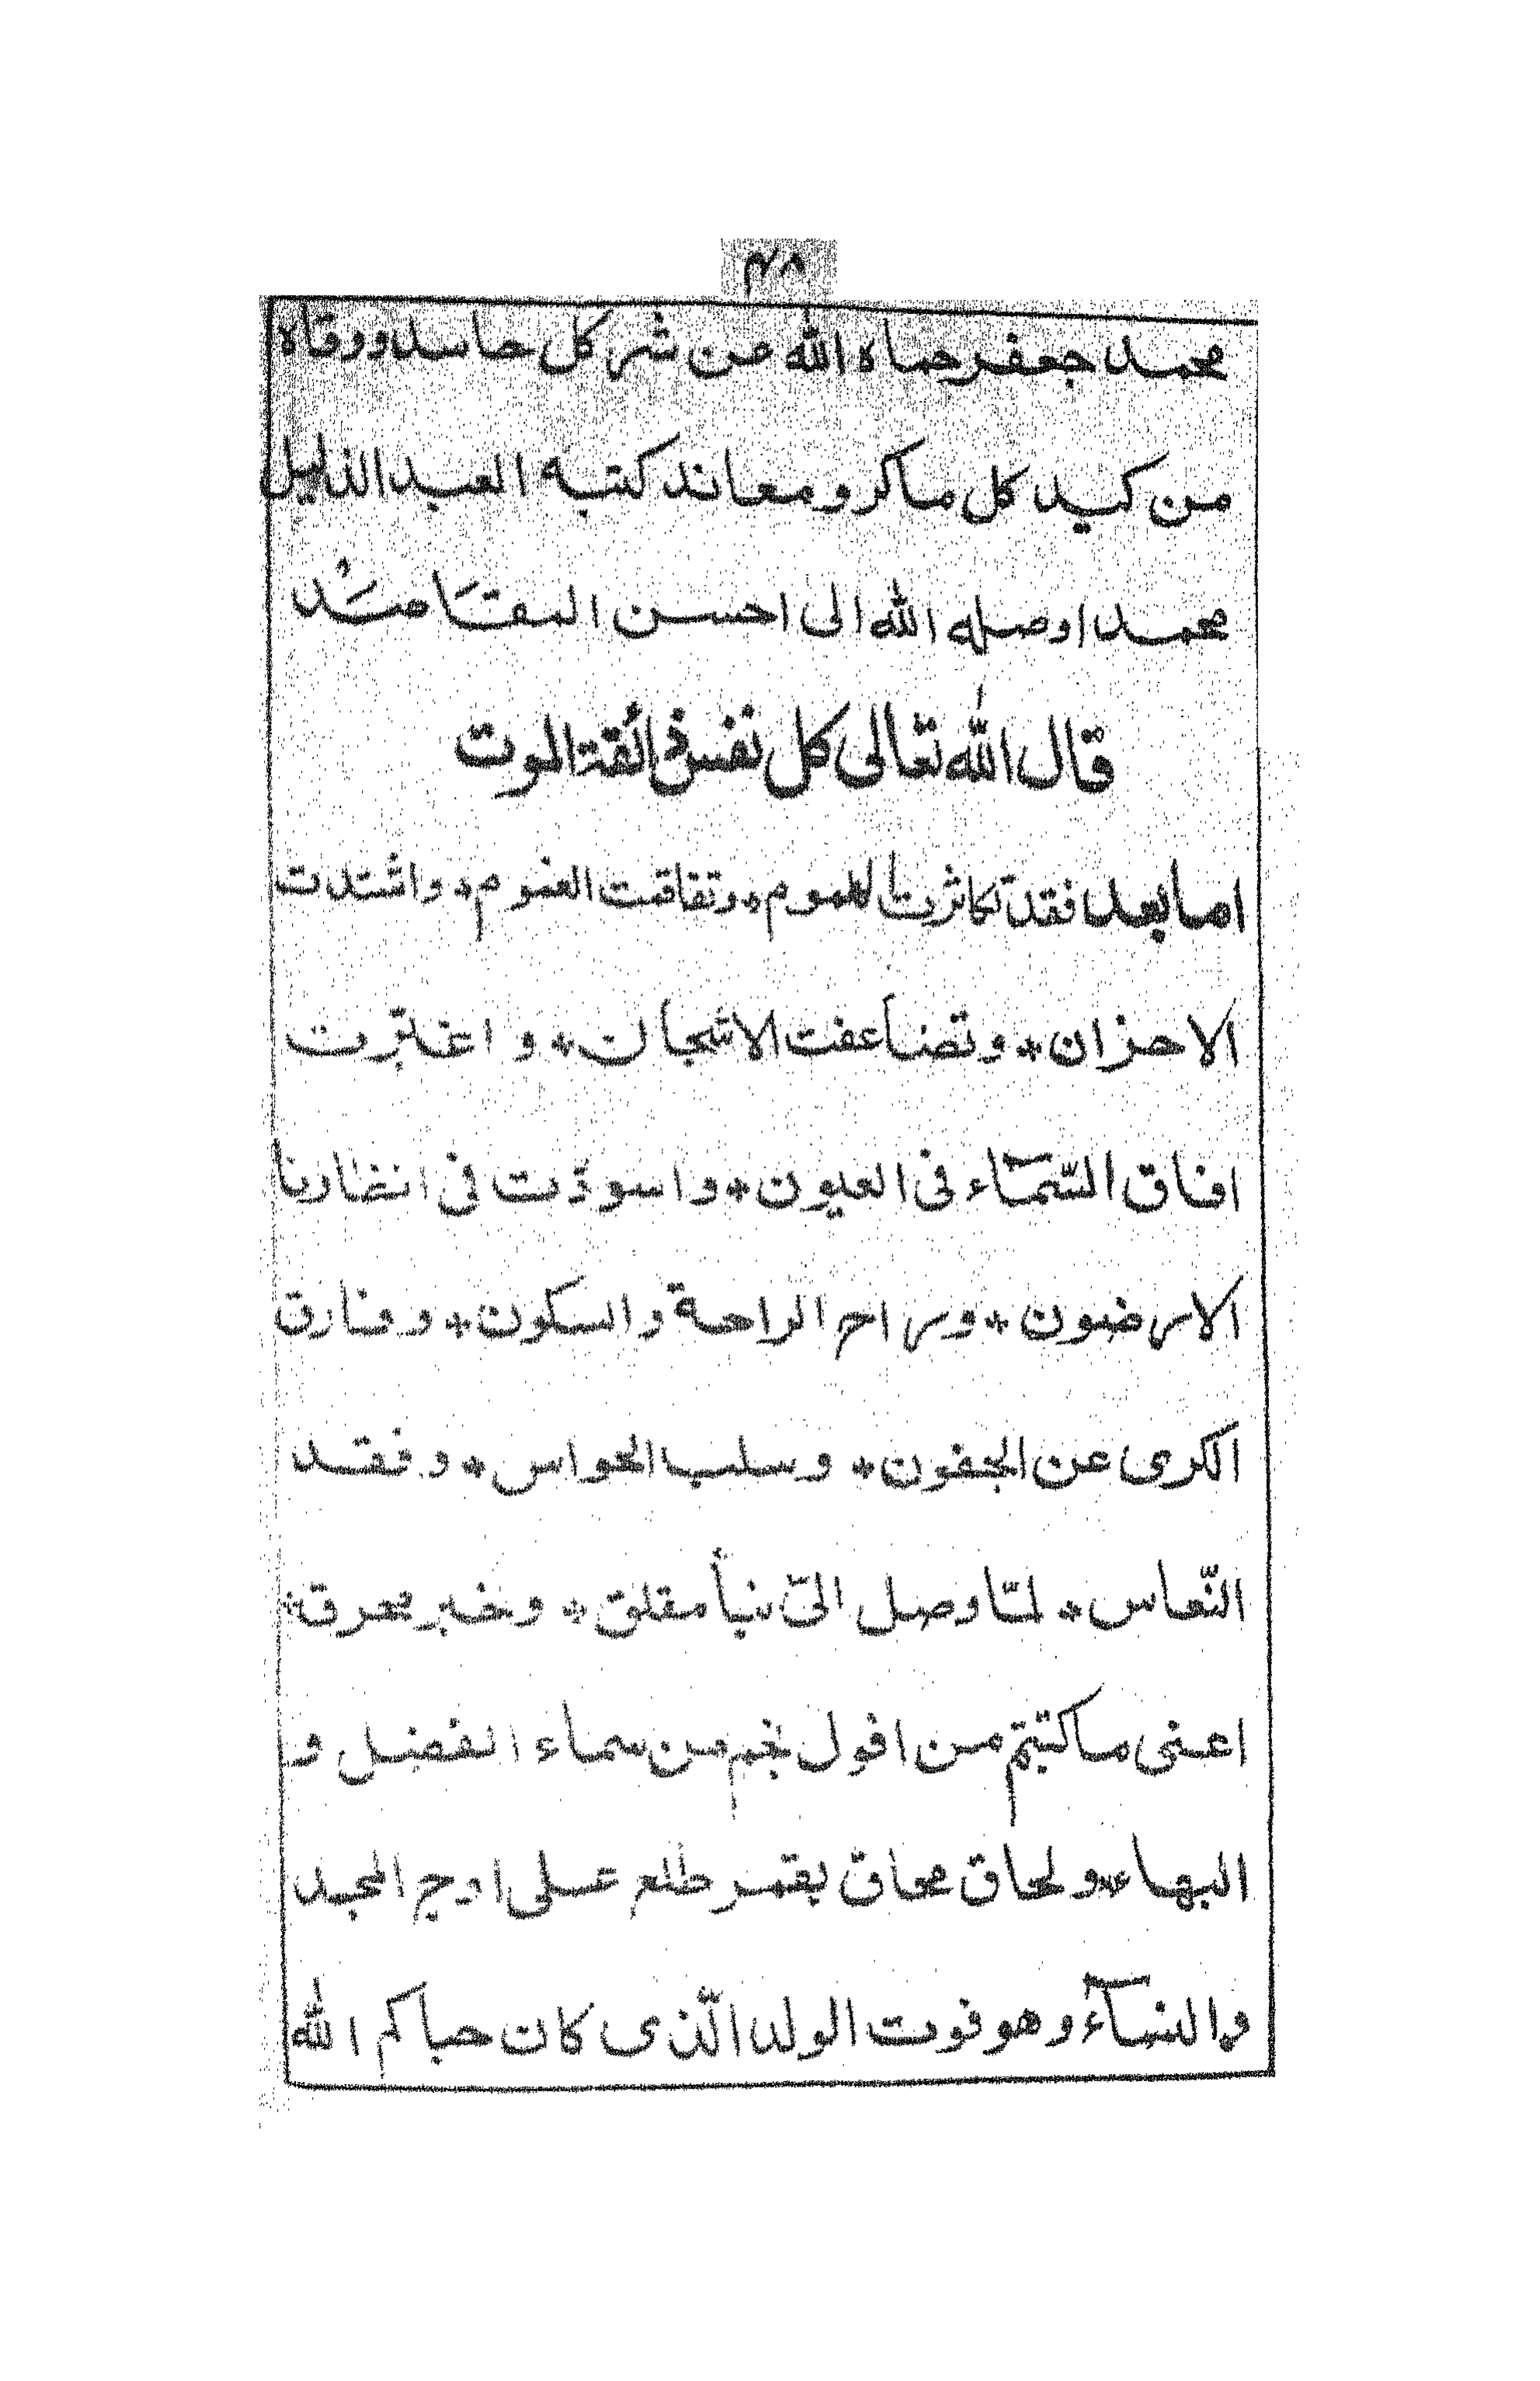 ۴۸
محمد جعفر حماه الله من شر كل حاسد ووقاه
من كيد كل ماكر و معاند كتبه العبد الذليل
محمد اوصله الله الى احسن المقاصد
قال الله تعالى كل نفس ذائقة الموت
اما بعد فقد تكاثرت الهموم * وتفاقمت الغموم * واشتدت
الاحزان * وتضاعفت الاشجان * و اغبرت
افاق السّمآء فى العيون * و اسودّت فى انظارنا
الارضون * وراح الراحة و السكون * و فارق
الكرى عن الجفون * و سلب الحواس * و فقد
النّعاس * لمّا وصل الىّ نبأ مقلق * و خبر محرق *
اعنى ما كتبتم من افول نجم من سماء الفضل و
البهاء * و لحاق محاق بقمر طلع على اوج المجد
والسنآء و هو فوت الولد الّذى كان حباكم الله